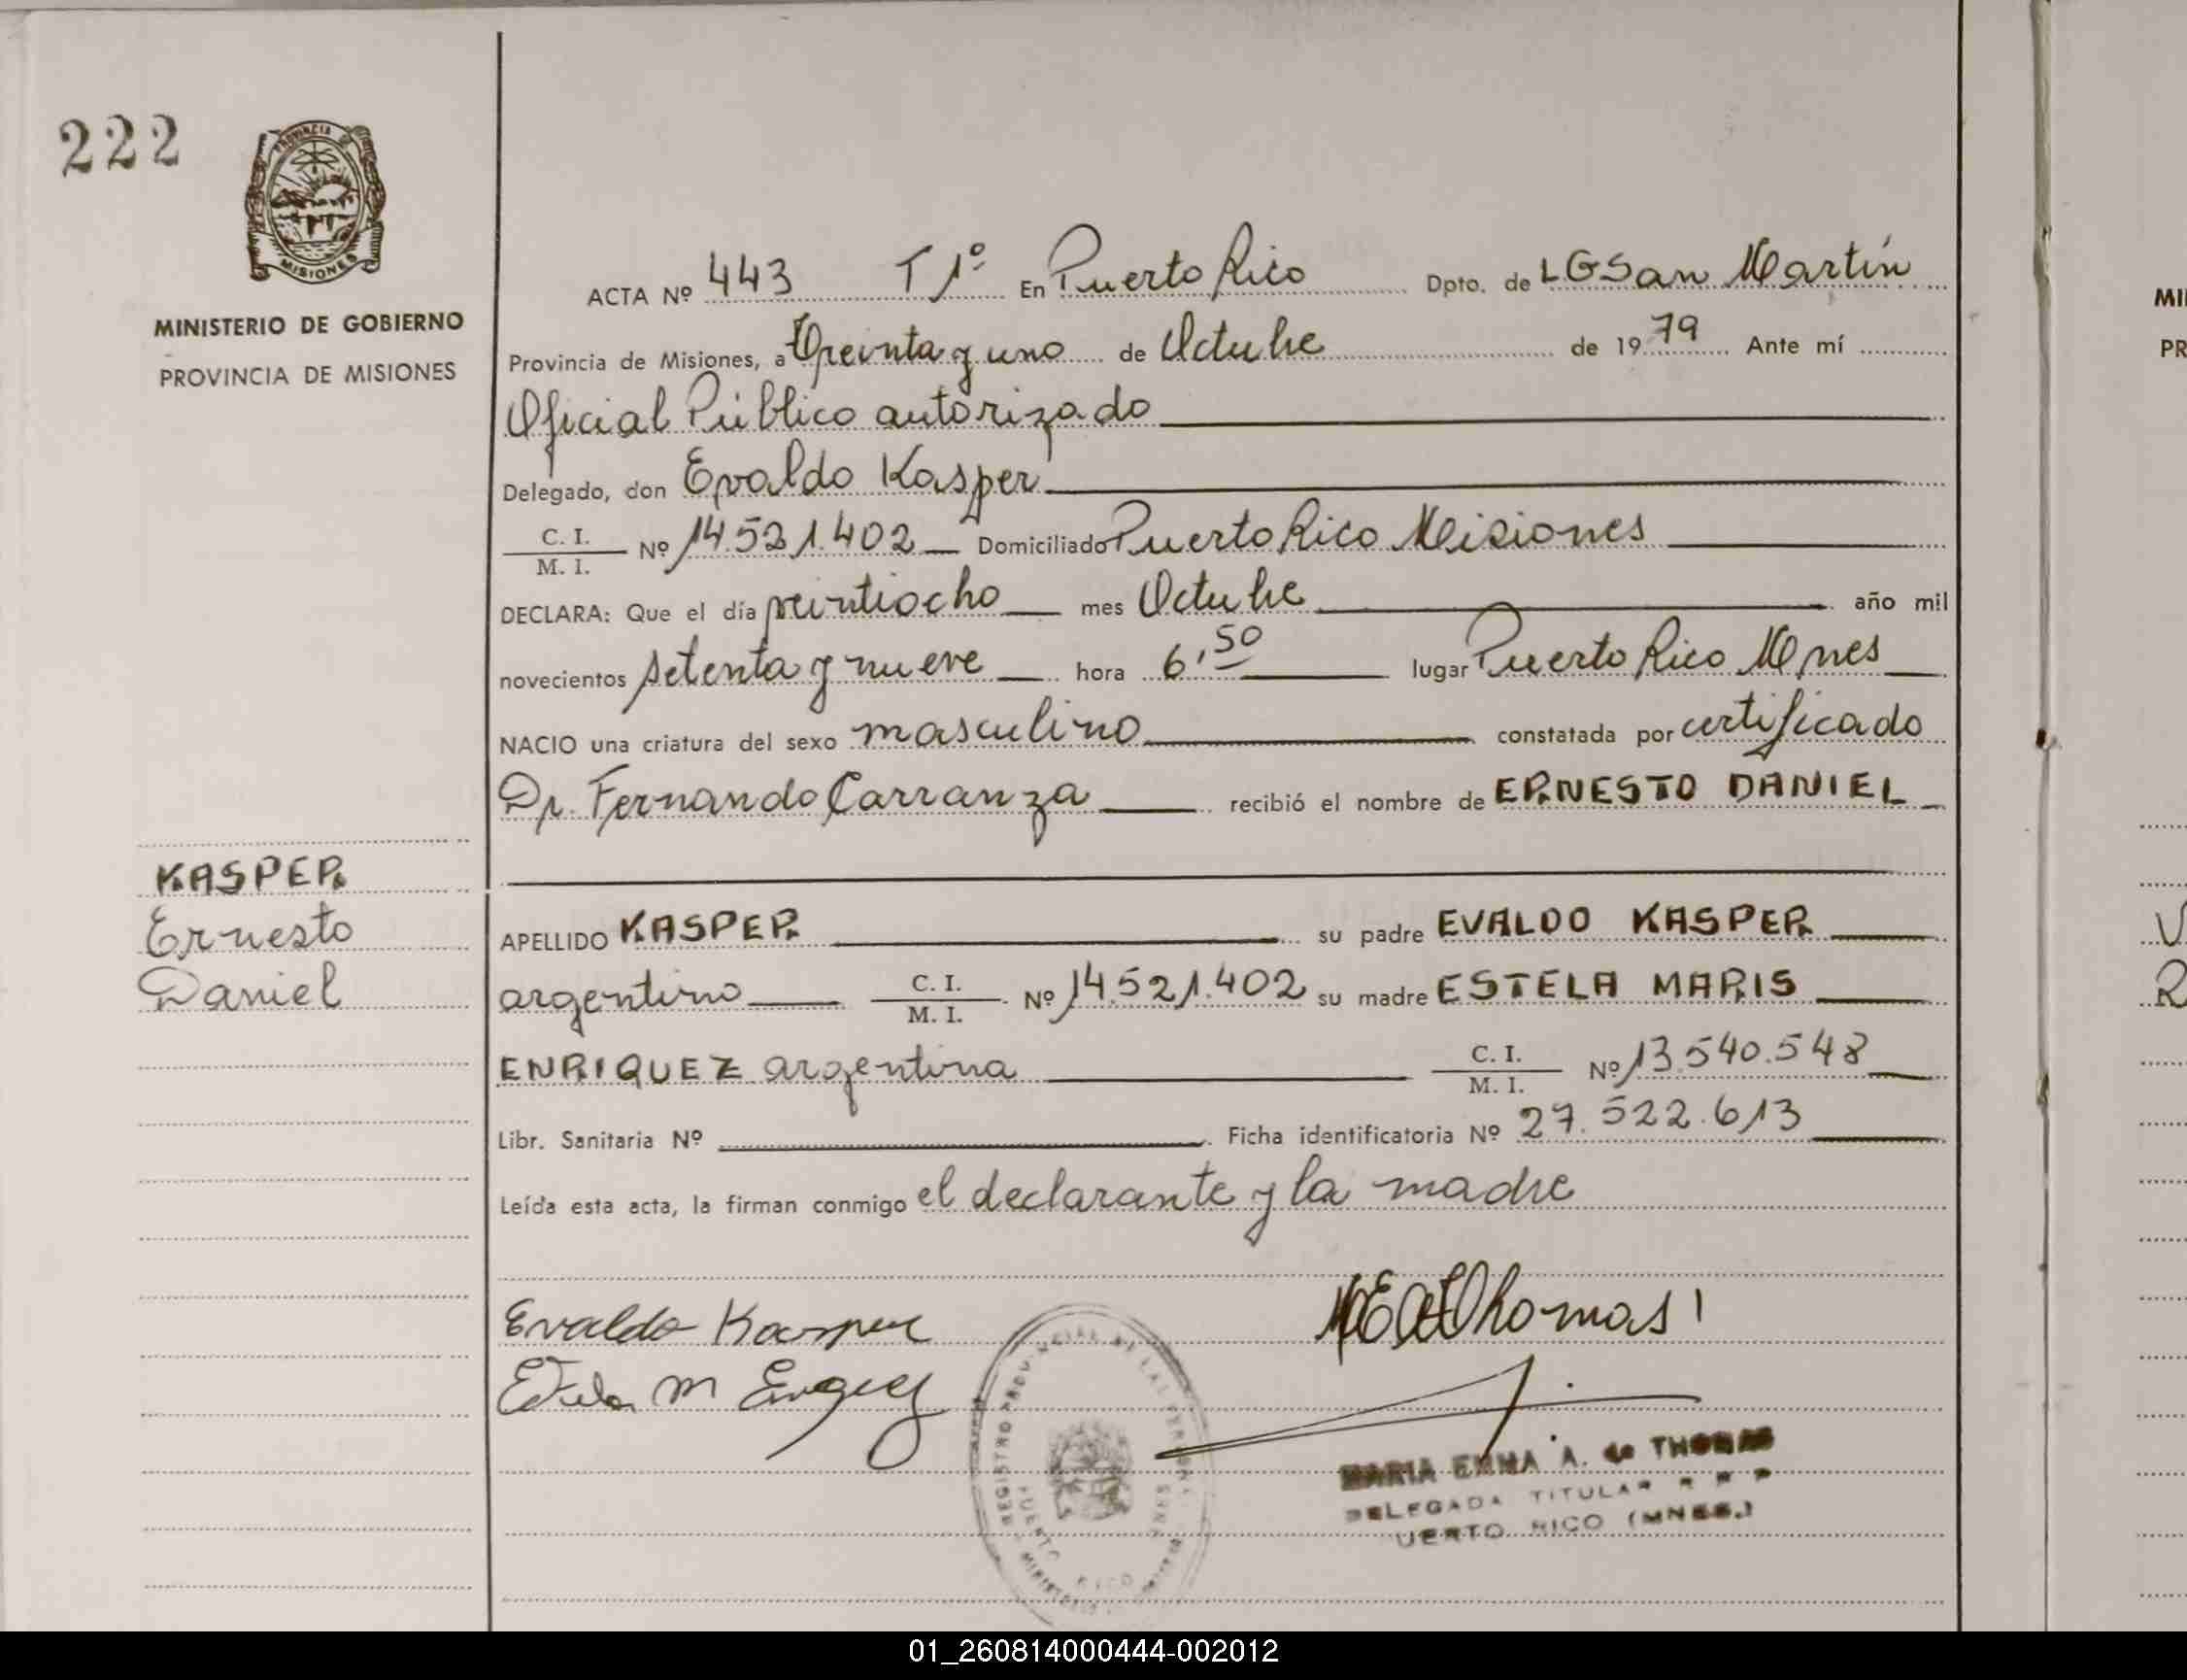 222
PROVINCIA DE
MISIONES
MINISTERIO DE GOBIERNO
PROVINCIA DE MISIONES
KASPER
Ernesto
Daniel
ACTA Nº 443 T 1º En Puerto Rico Dpto. de LGSan Martín
Provincia de Misiones, a Treinta y uno de Octubre de 1979 Ante mí
Oficial Público autorizado
Delegado, don Evaldo Kasper
C. I.
M. I. Nº 14.521.402 Domiciliado Puerto Rico Misiones
DECLARA: Que el día veintiocho mes Octubre año mil
novecientos setenta y nueve hora 6,50 lugar Puerto Rico Mnes
NACIO una criatura del sexo masculino constatada por certificado
Dr. Fernando Carranza recibió el nombre de ERNESTO DANIEL
APELLIDO KASPER su padre EVALDO KASPER
argentino C. I. M. I. Nº 14.521.402 su madre ESTELA MARIS
ENRIQUEZ argentina C. I. M. I. Nº 13.540.548
Libr. Sanitaria Nº Ficha identificatoria Nº 27.522.613
Leída esta acta, la firman conmigo el declarante y la madre
Evaldo Kasper
MARIA EMMA A. de THOMAS
DELEGADA TITULAR
UERTO RICO (MNES.)
01_260814000444-002012